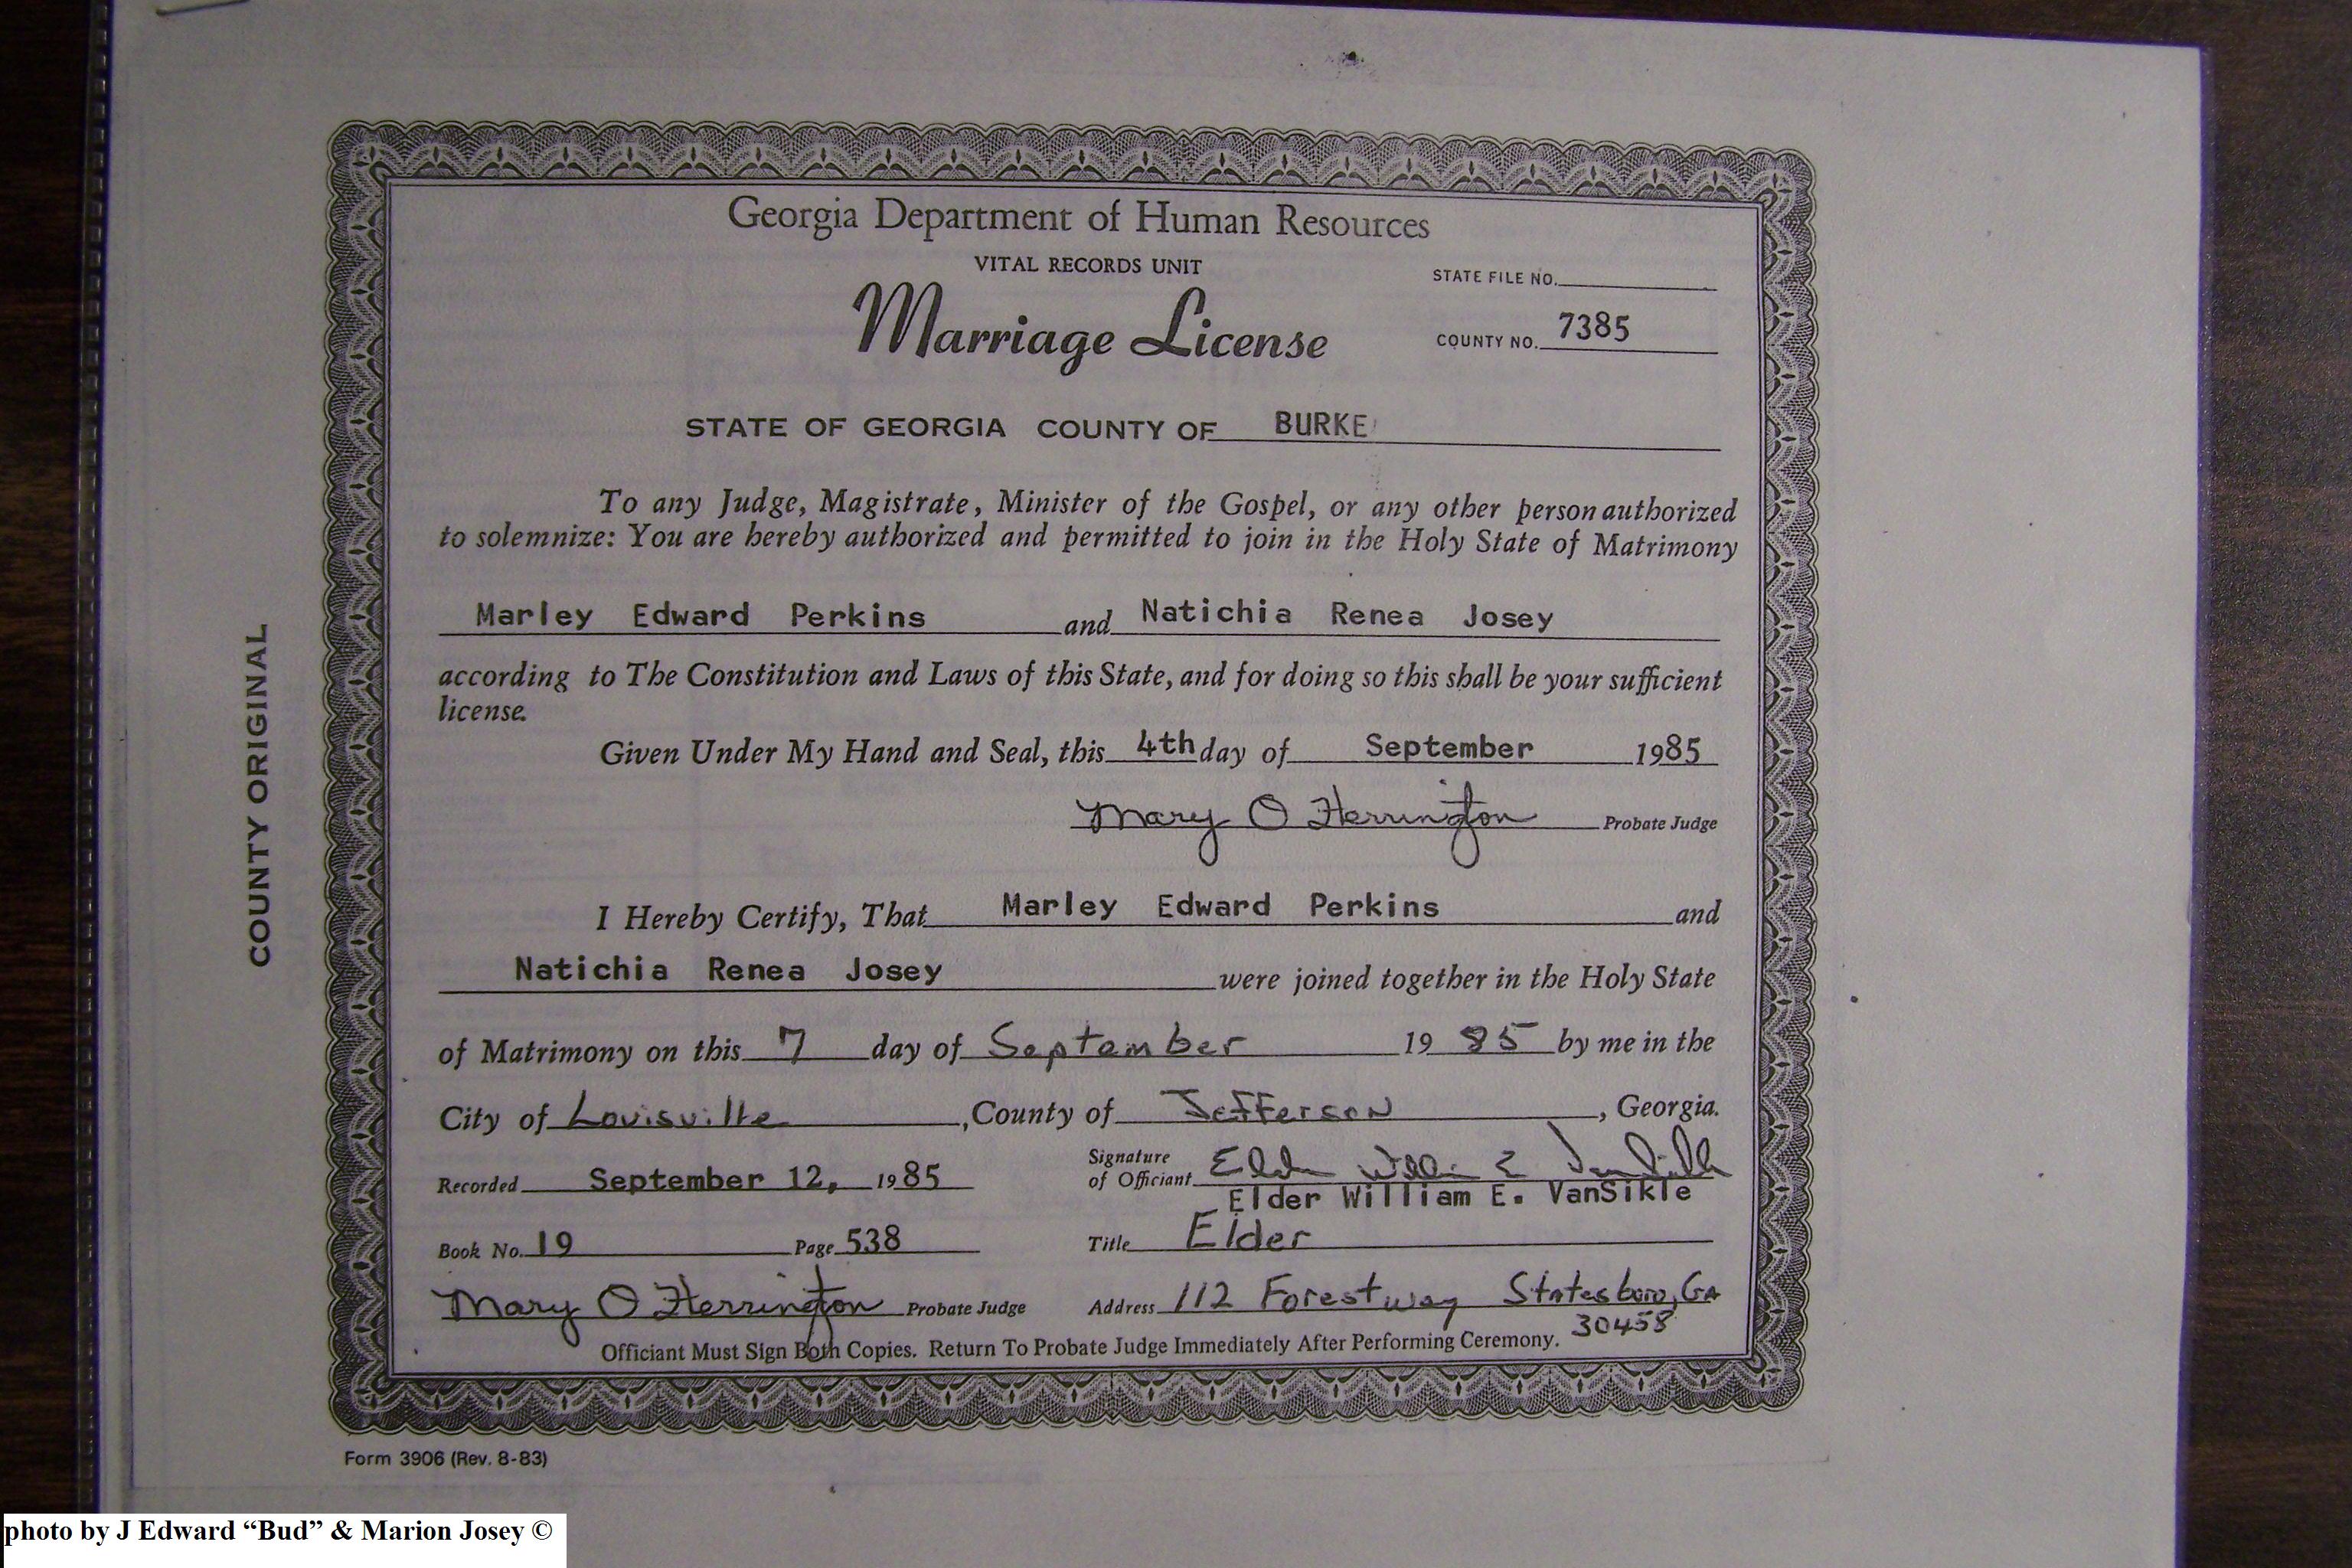 Georgia Department of Human Resources
VITAL RECORDS UNIT
STATE FILE NO.
Marriage License
COUNTY NO. 7385
STATE OF GEORGIA COUNTY OF BURKE
To any Judge, Magistrate, Minister of the Gospel, or any other person authorized
to solemnize: You are hereby authorized and permitted to join in the Holy State of Matrimony
Marley Edward Perkins and Natichia Renea Josey
according to The Constitution and Laws of this State, and for doing so this shall be your sufficient
license.
Given Under My Hand and Seal, this 4th day of September 1985
Mary O Herrington Probate Judge
I Hereby Certify, That Marley Edward Perkins and
Natichia Renea Josey were joined together in the Holy State
of Matrimony on this 7 day of September 19 85 by me in the
City of Louisville, County of Jefferson, Georgia.
Recorded September 12, 1985
Signature
of Officiant Elder William E VanSikle
Elder William E. VanSikle
Book No. 19 Page 538
Title Elder
Mary O Herrington Probate Judge
Address 112 Forestway Statesboro, GA
30458
Officiant Must Sign Both Copies. Return To Probate Judge Immediately After Performing Ceremony.
COUNTY ORIGINAL
Form 3906 (Rev. 8-83)
photo by J Edward “Bud” & Marion Josey ©